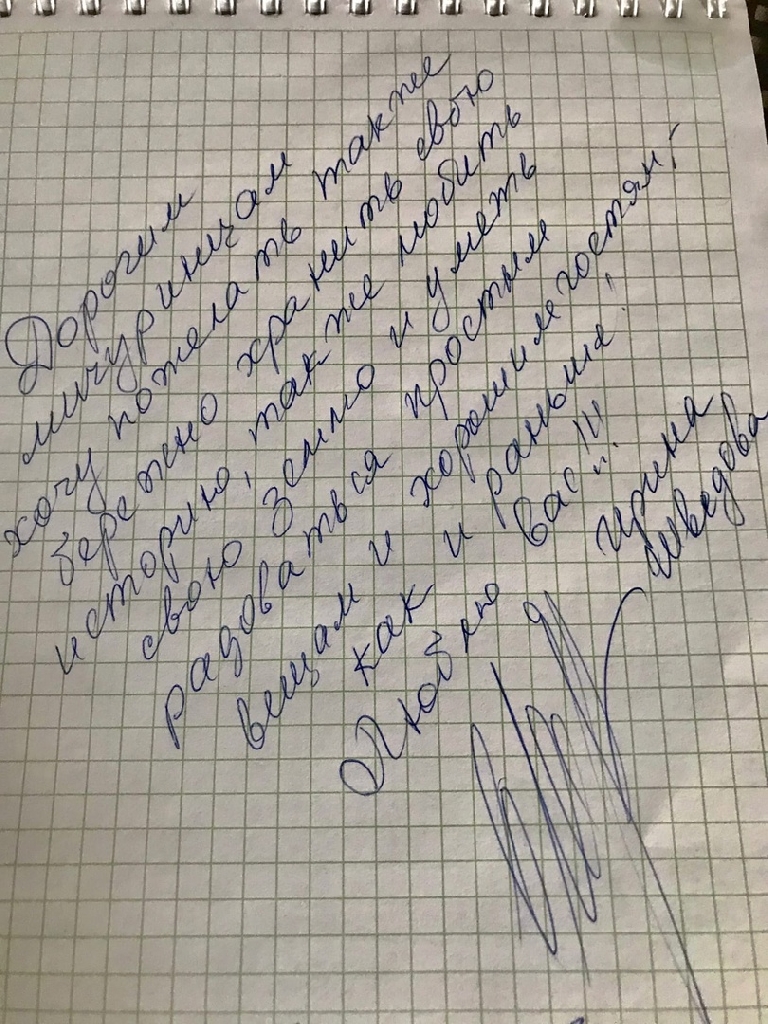 Дорогим
мичуринцам
хочу пожелать также
бережно хранить свою
историю, также любить
свою землю и уметь
радоваться простым
вещам и хорошим гостям,
как и раньше!
Люблю вас!!!
Ирина
Шведова